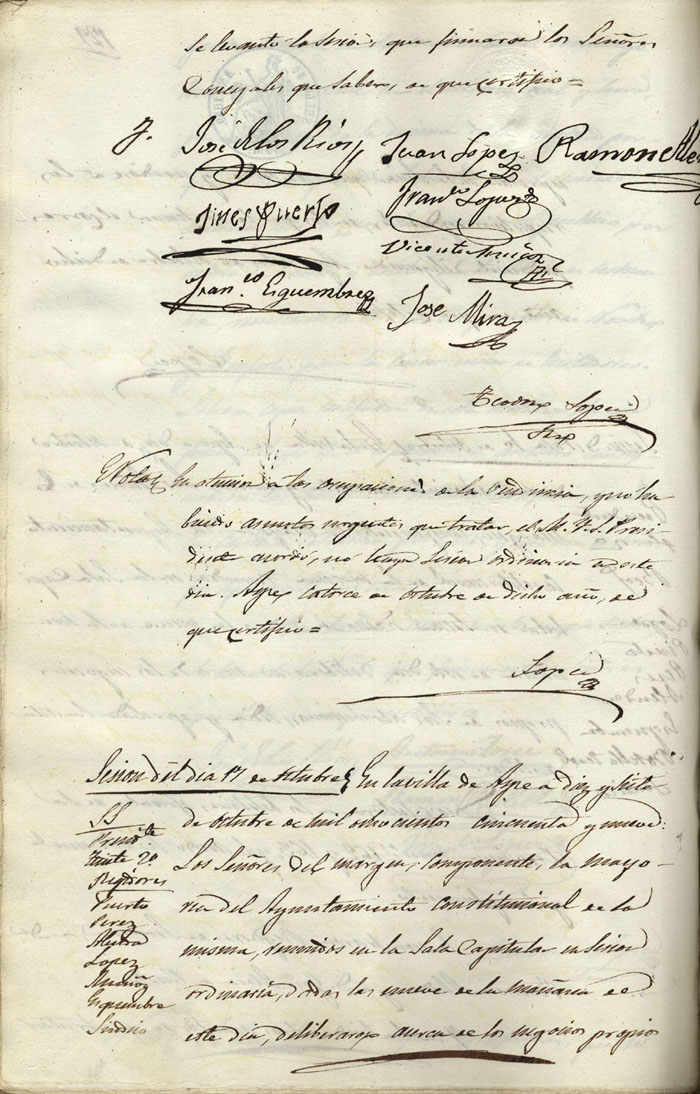 se levantó la sesion, que firmaron los Señores
Concejales que saben, de que certifico=
José de los Rios Juan Lopez Ramon
Gines Puerto Franco Lopez
Vicente Muñoz
Franco Esquembre
Jose Mira
Teodoro Lopez
Srio
Nota En atencion a las ocupaciones de la vendimia, y no ha
bido asuntos urgentes que tratar, el M. Y. S. Presi
dente acordó, no haya Sesion ordinaria en este
dia. Aspe catorce de octubre de dicho año, de
que certifico=
Lopez
Sesion del dia 17 de octubre En la villa de Aspe a diez y siete
de octubre de mil ochocientos cincuenta y nueve:
Los Señores del margen, componente, la mayo-
ria del Ayuntamiento Constitucional de la
misma, reunidos en la Sala Capitular en Sesion
ordinaria, dadas las nueve de la mañana de
este dia, deliberaron acerca de los negocios propios
SS
Presidte
Tente 2º
Regidores
Puerto
Perez
Lopez
Muñoz
Esquembre
Sindico